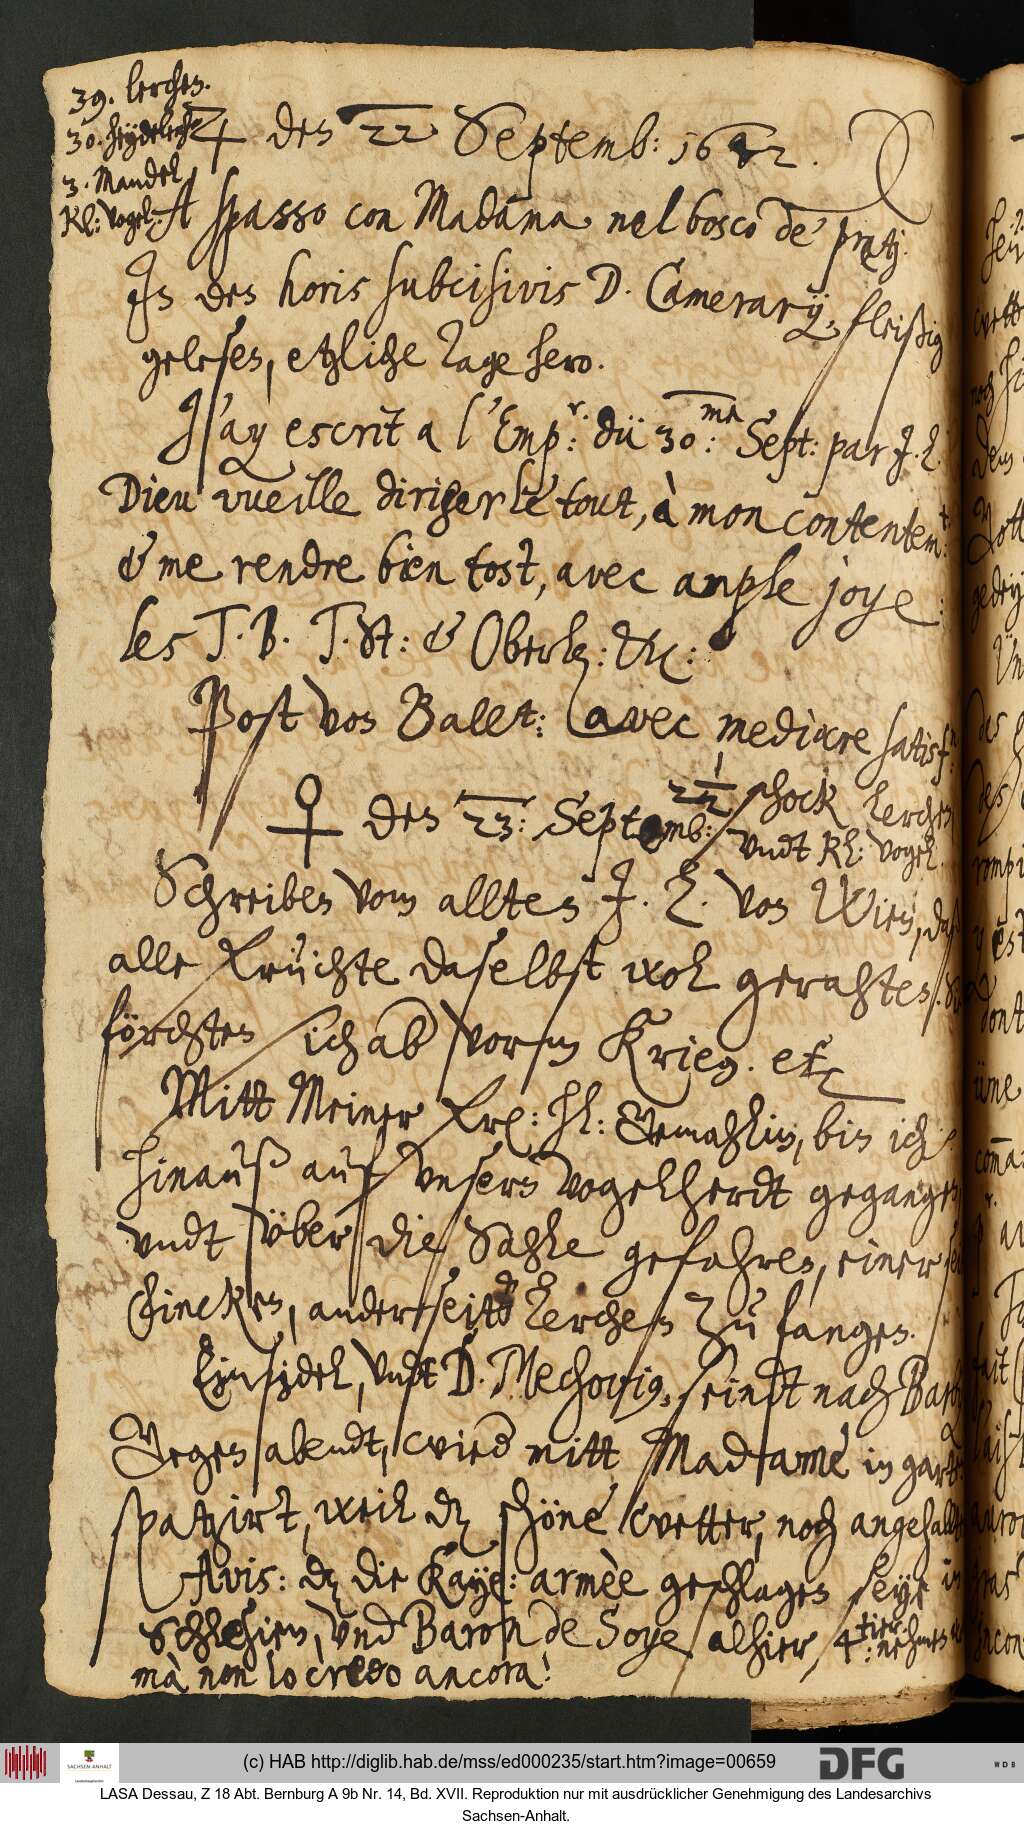 39. lerchen.
30. heydelerche
3. Mandel
Kl: Vogel.
♃ den 22 Septemb: 1642.
A spasso con Madama nel bosco de' pratj.
In den horis subcisivis D. Camerarij, fleißig
gelesen, etzliche Tage hero.
J'ay escrit a l'Emp.r: dü 30.me: Sept: par J. L.
Dieu vueille diriger le tout, à mon contentem.t:
& me rendre bien tost, avec ample joye:
les T. B. T. St: & Oberlz: &c:
Post von Ballst: avec mediocre satisf.n
22½ schock lerchen
♀ den 23: Septemb: vndt kl: vogel.
Schreiben vom allten J. L. von Wien, daß
alle früchte daselbst wol gerahten,
förchten sich ab vorm Krieg. etc
Mitt Meiner frl: hl: Gemahlin, bin ich
hinauß auf vnsern Vogelherdt gegangen
vndt vber die Sahle gefahren, einer sei
finckes, anderseits Lerchen zu fangen.
Einsidel, vndt D. Mechovius, seindt nach Barb
Gegen abendt, wird mitt Madame in gart
spatzirt, weil dz schöne wetter, noch angehalt
Avis: dz die Kaye: armèe geschlagen seye in
Schlesien, vnd Baron de Soye alhier, 4.tier: nehmen
mà non lo credo ancora!
(c) HAB http://diglib.hab.de/mss/ed000235/start.htm?image=00659
SACHSEN-ANHALT
DFG
WDB
LASA Dessau, Z 18 Abt. Bernburg A 9b Nr. 14, Bd. XVII. Reproduktion nur mit ausdrücklicher Genehmigung des Landesarchivs
Sachsen-Anhalt.